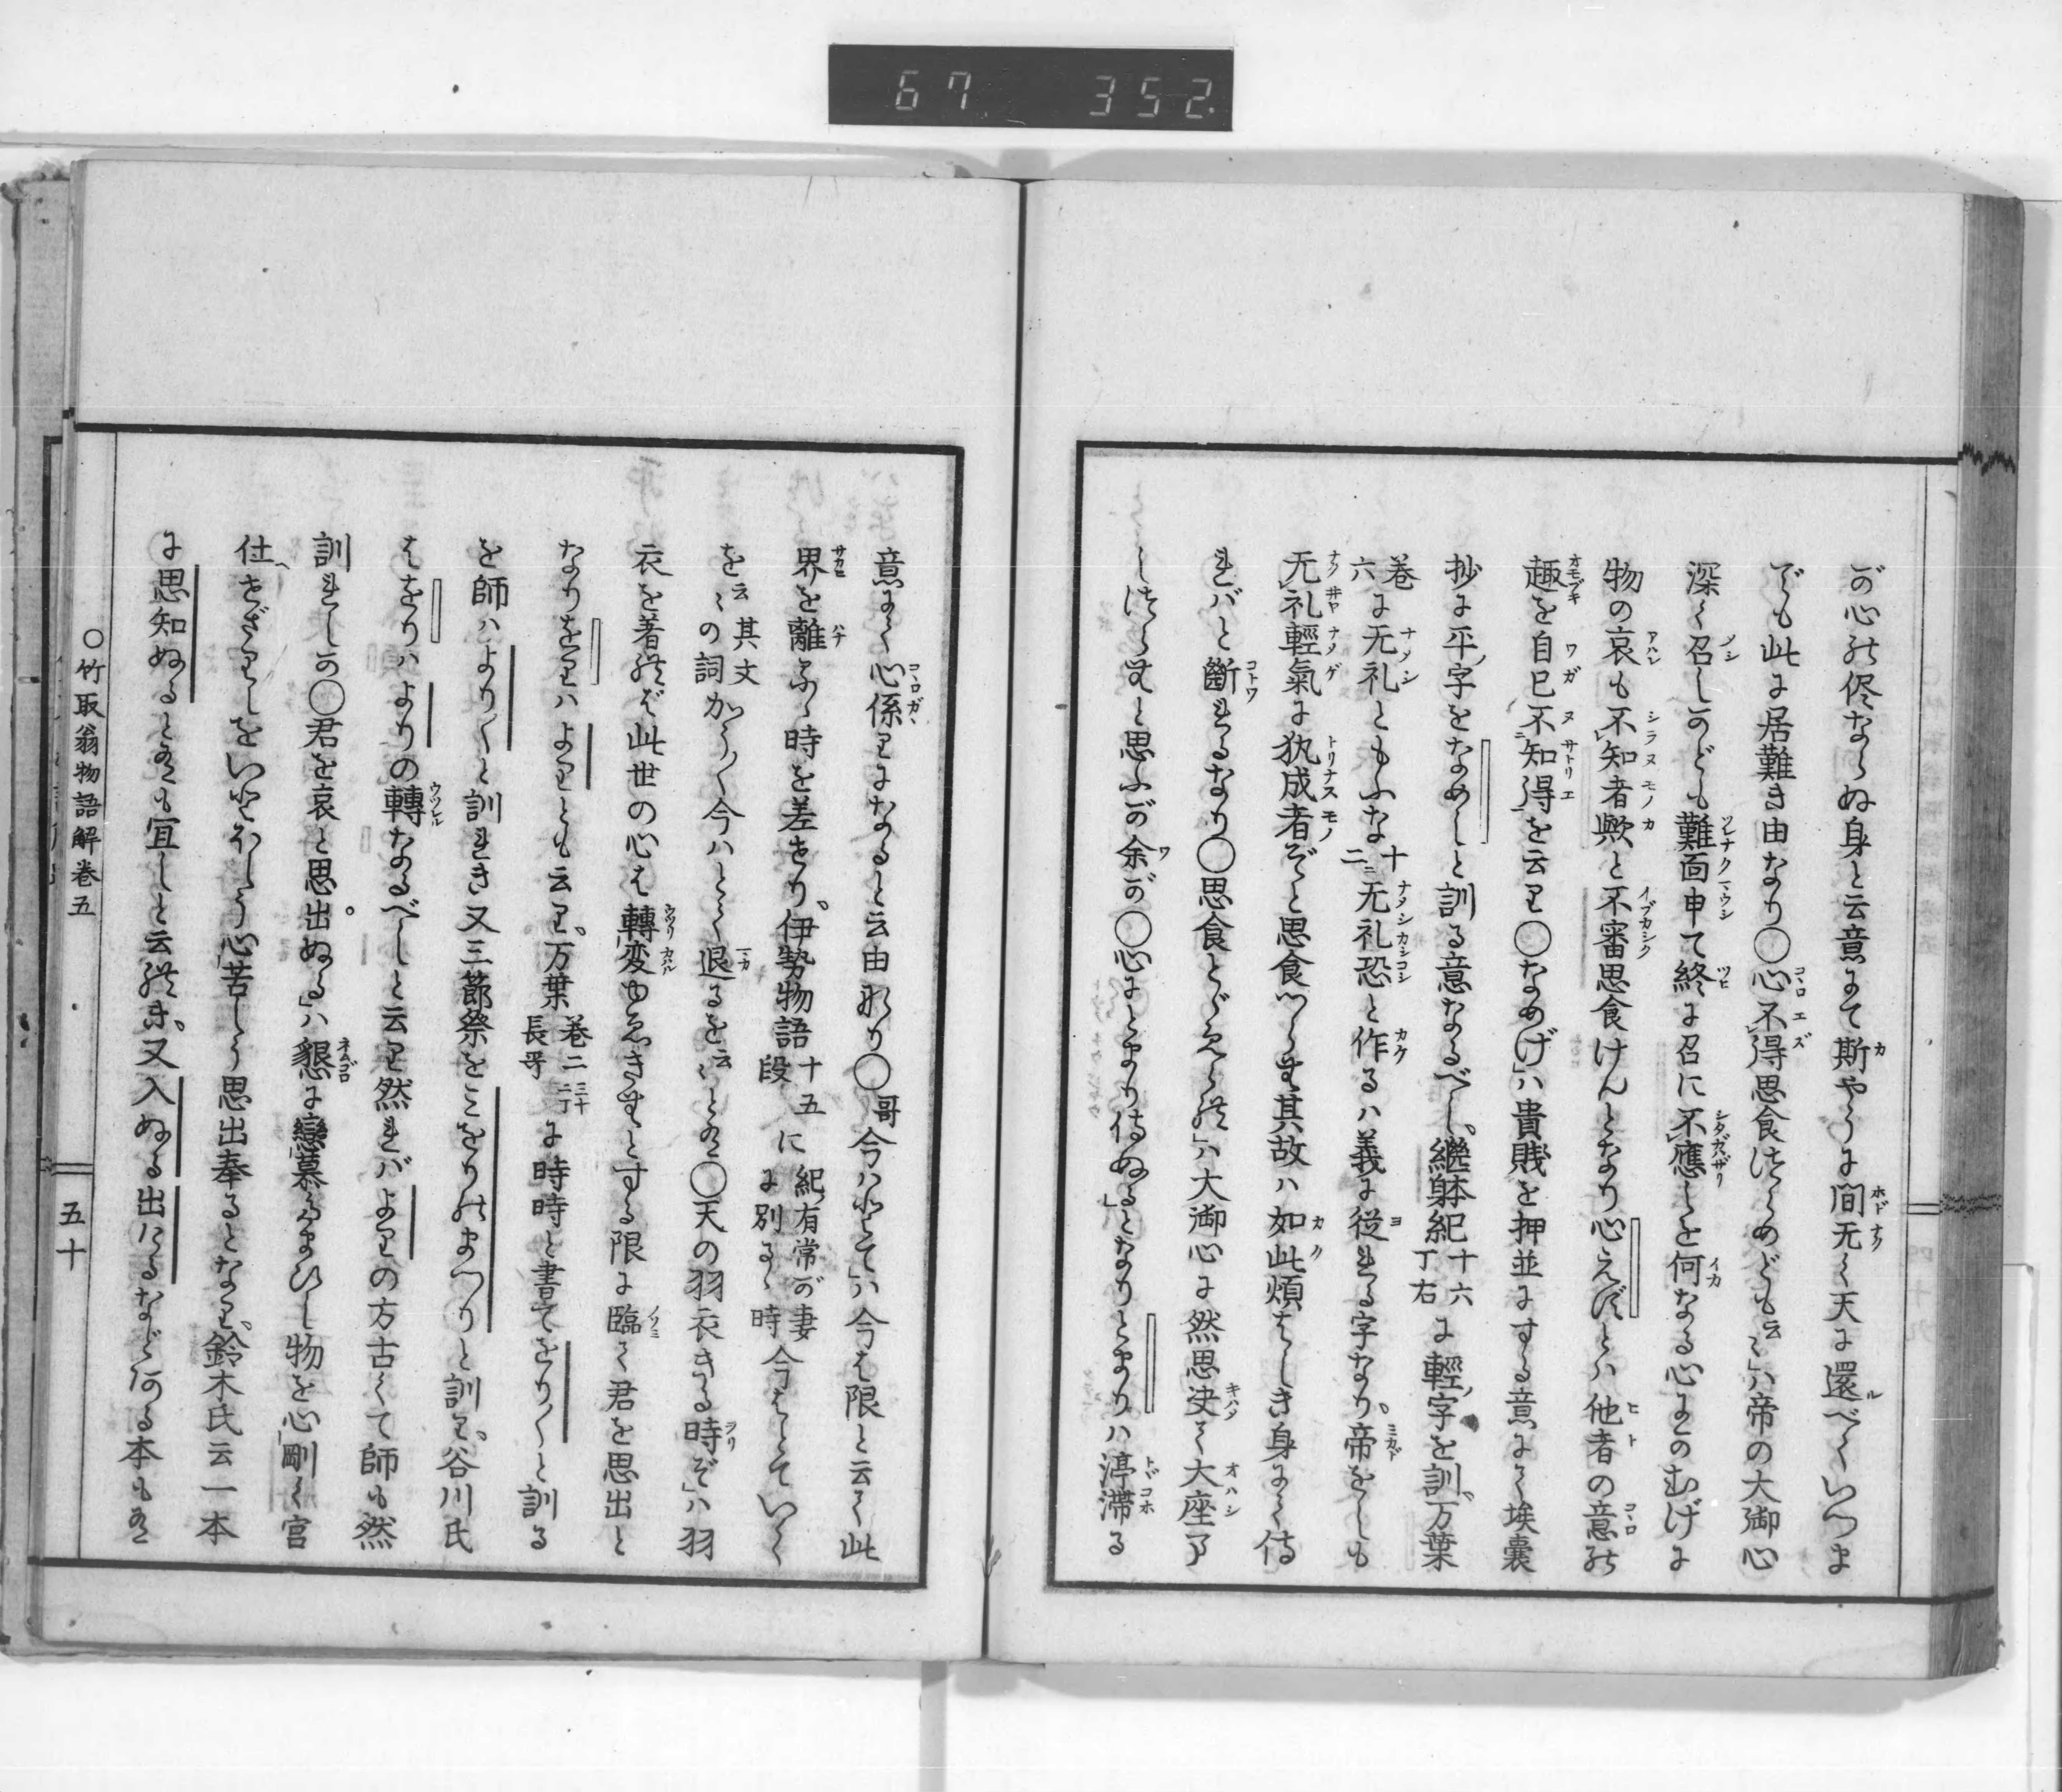 67 352
が心の侭ならぬ身と云意にて斯やうに間无く天に還べくいつま
でも此に居難き由なり〇心不得思食つらめども云々ハ帝の大御心
深く召しかども難面申て終に召に不應しを何なる心にかむげに
物の哀も不知者歟と不審思食けんとなり心えずとハ他者の意の
趣を自己不知得を云り〇なめげハ貴賎を押並にする意にて埃囊
抄に平字をなめしと訓る意なるべし、繼躰紀十六丁右に輕字を訓、万葉
巻六に无礼ともふな十二二无礼恐と作るハ義に従れる字なり、帝をしも
无礼輕氣に執成者ぞと思食つらむ其故ハ如此煩はしき身にて侍
れバと斷れるなり〇思食とゞめられハ大御心に然思決く大座
しつらむと思ふが余が〇心にとまり侍ぬるとなりとまりハ渟滯る
意にて心係りになると云由なり〇哥今ハとてハ今は限と云て此
界を離ふる時を差せり、伊勢物語十五段に紀有常が妻に別るゝ時今はとていく
を云々其文の詞かくて今ハとて退るを云々とある〇天の羽衣きる時ぞハ羽
衣を著れば此世の心は轉変ゆゑきむとする限に臨て君を思出と
なりをりハよりとも云り、万葉巻二長哥三十二丁に時時と書てをり〱と訓る
を師ハより〱と訓れき又三節祭をこをりのまつりと訓り、谷川氏
はをりハよりの轉なるべしと云り然れバよりの方古くて師も然
訓れしか〇君を哀と思出ぬるハ懇に戀慕たまひし物を心剛く宮
仕せざりしをいとほしう心苦しう思出奉るとなり、鈴木氏云一本
に思知ぬるとあるも宜しと云れき、又入ぬる出けるなど何る本もあり
〇竹取翁物語解巻五
五十